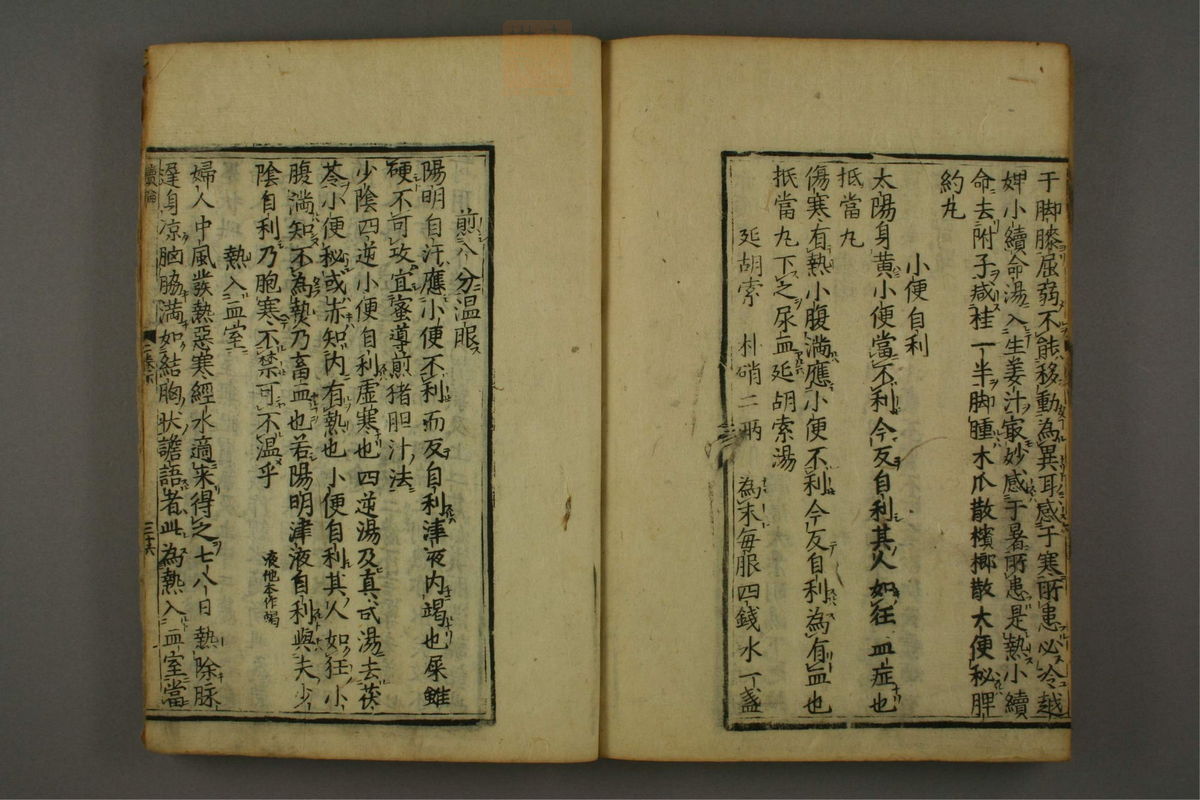 于脚膝屈弱不能移動為異耳感于寒所患必冷越
婢小續命湯入生姜汁㝡妙感于暑所患是熱小續
命去附子减桂一半脚腫木瓜散檳榔散大便秘脾
約丸
小便自利
太陽身黄小便當不利今反自利其人如狂血症也
抵當丸
傷寒有熱小腹満應小便不利今反自利為有血也
抵當丸下之尿血延胡索湯
延胡索 朴硝二兩 為末毎服四錢水一盞
煎八分温服
陽明自汗應小便不利而反自利津液内竭也屎雖
硬不可攻宜蜜導煎猪胆汁法
少陰四逆小便自利虚寒也四逆湯及真武湯去茯
苓小便秘或赤知内有熱也小便自利其人如狂小
腹満知不為熱乃畜血也若陽明津液自利與夫少
陰自利乃胞寒不禁可不温乎 液他本作竭
熱入血室
婦人中風發熱惡寒經水適来得之七八日熱除脉
遲身凉胸脇満如結胸状譫語者此為熱入血室當
三十六